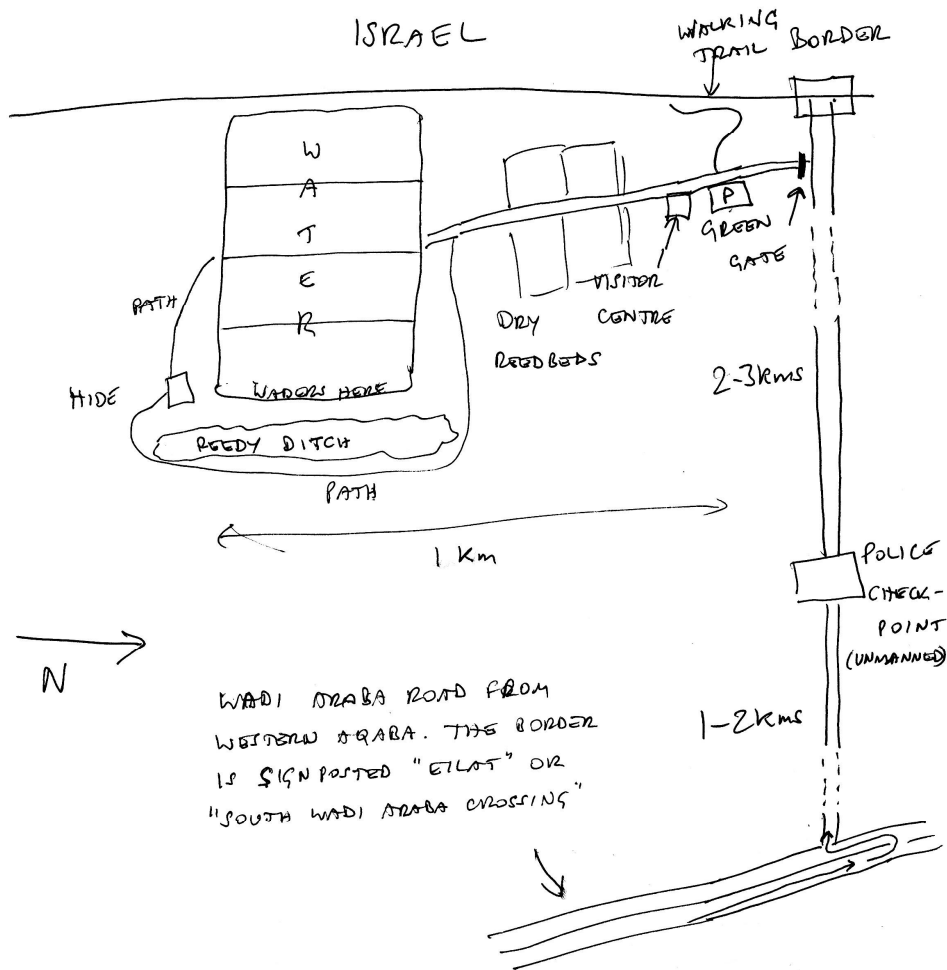 ISRAEL
WALKING
TRAIL
BORDER
W
A
T
E
R
WADERS HERE
PATH
HIDE
REEDY DITCH
PATH
DRY
REEDBEDS
VISITOR
CENTRE
P
GREEN
GATE
2-3kms
1 Km
POLICE
CHECK-
POINT
(UNMANNED)
N
1-2kms
WADI ARABA ROAD FROM
WESTERN AQABA. THE BORDER
IS SIGNPOSTED "EILAT" OR
"SOUTH WADI ARABA CROSSING"